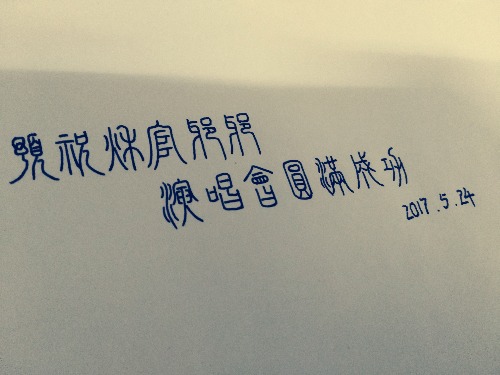 預祝秋官
演唱會圓滿成功
2017.5.24